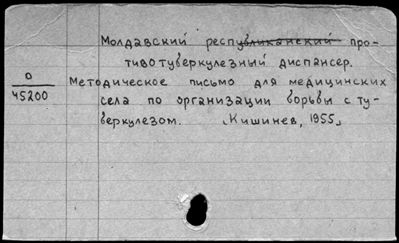 Молдавский республиканский про-
тивотуверкулезный диспансер.
О
45200
Методическое письмо для медицинских
села по организации борьвы с ту-
веркулезом. [Кишинев, 1955]